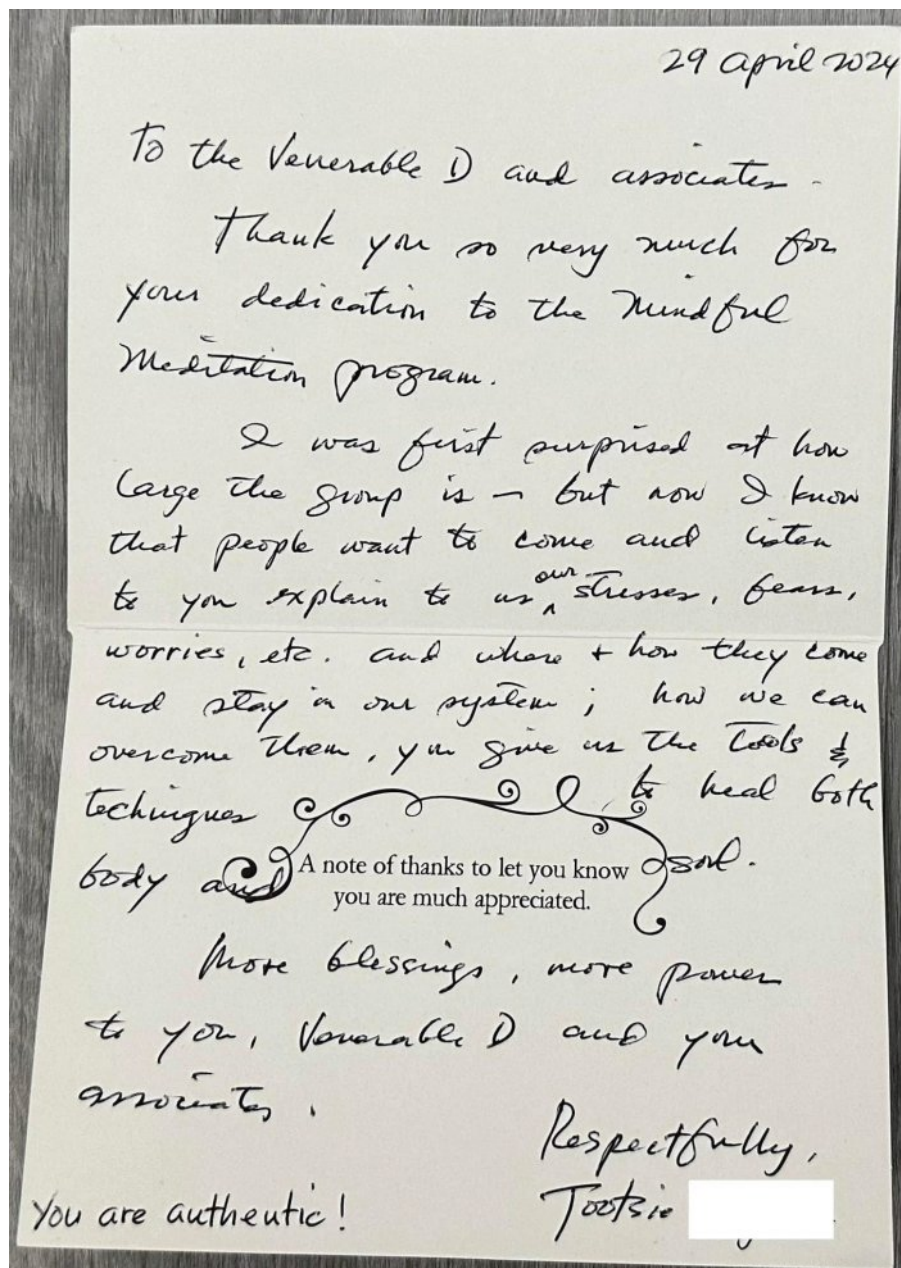 29 April 2024
To the Venerable D and associates -
Thank you so very much for
your dedication to the Mindful
Meditation program.
I was first surprised at how
large the group is – but now I know
that people want to come and listen
to you explain to us our stresses, fears,
worries, etc. and where + how they come
and stay in our system; how we can
overcome them, you give us the tools &
techniques to heal both
body and soul.
A note of thanks to let you know
you are much appreciated.
More blessings, more power
to you, Venerable D and your
associates.
Respectfully,
Tootsie
You are authentic!